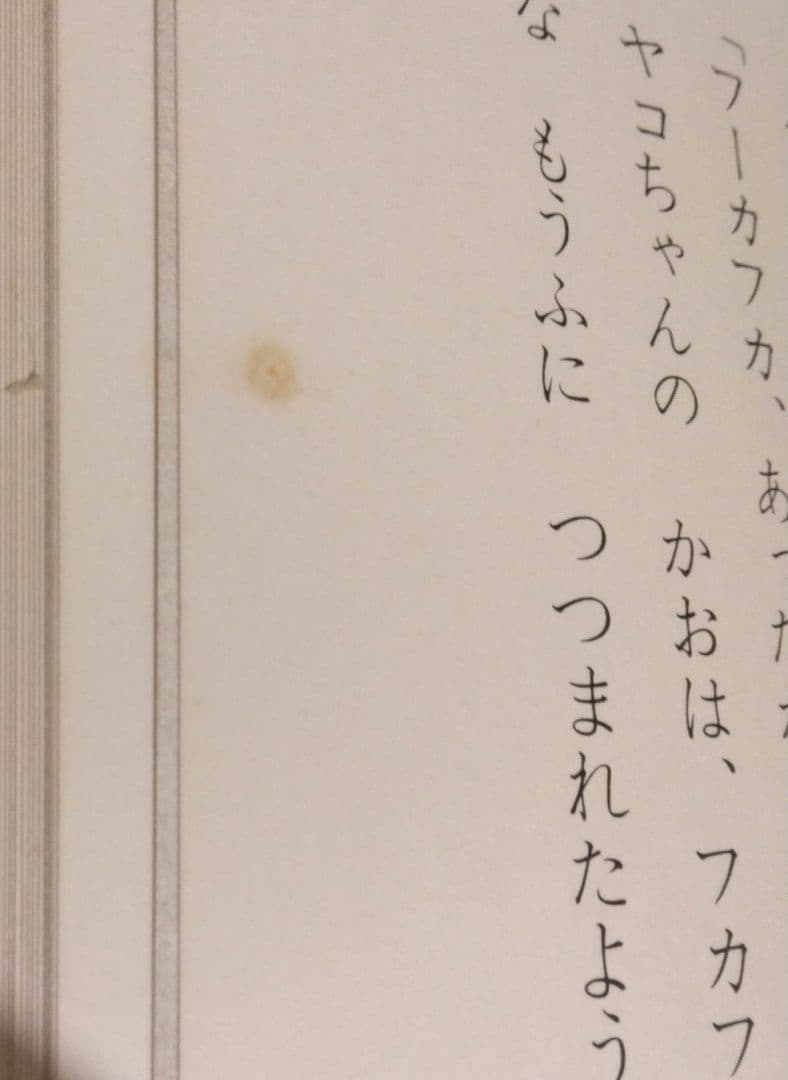 フーカフカ、あった
ヤコちゃんの かおは、フカフ
な もうふに つつまれたよう